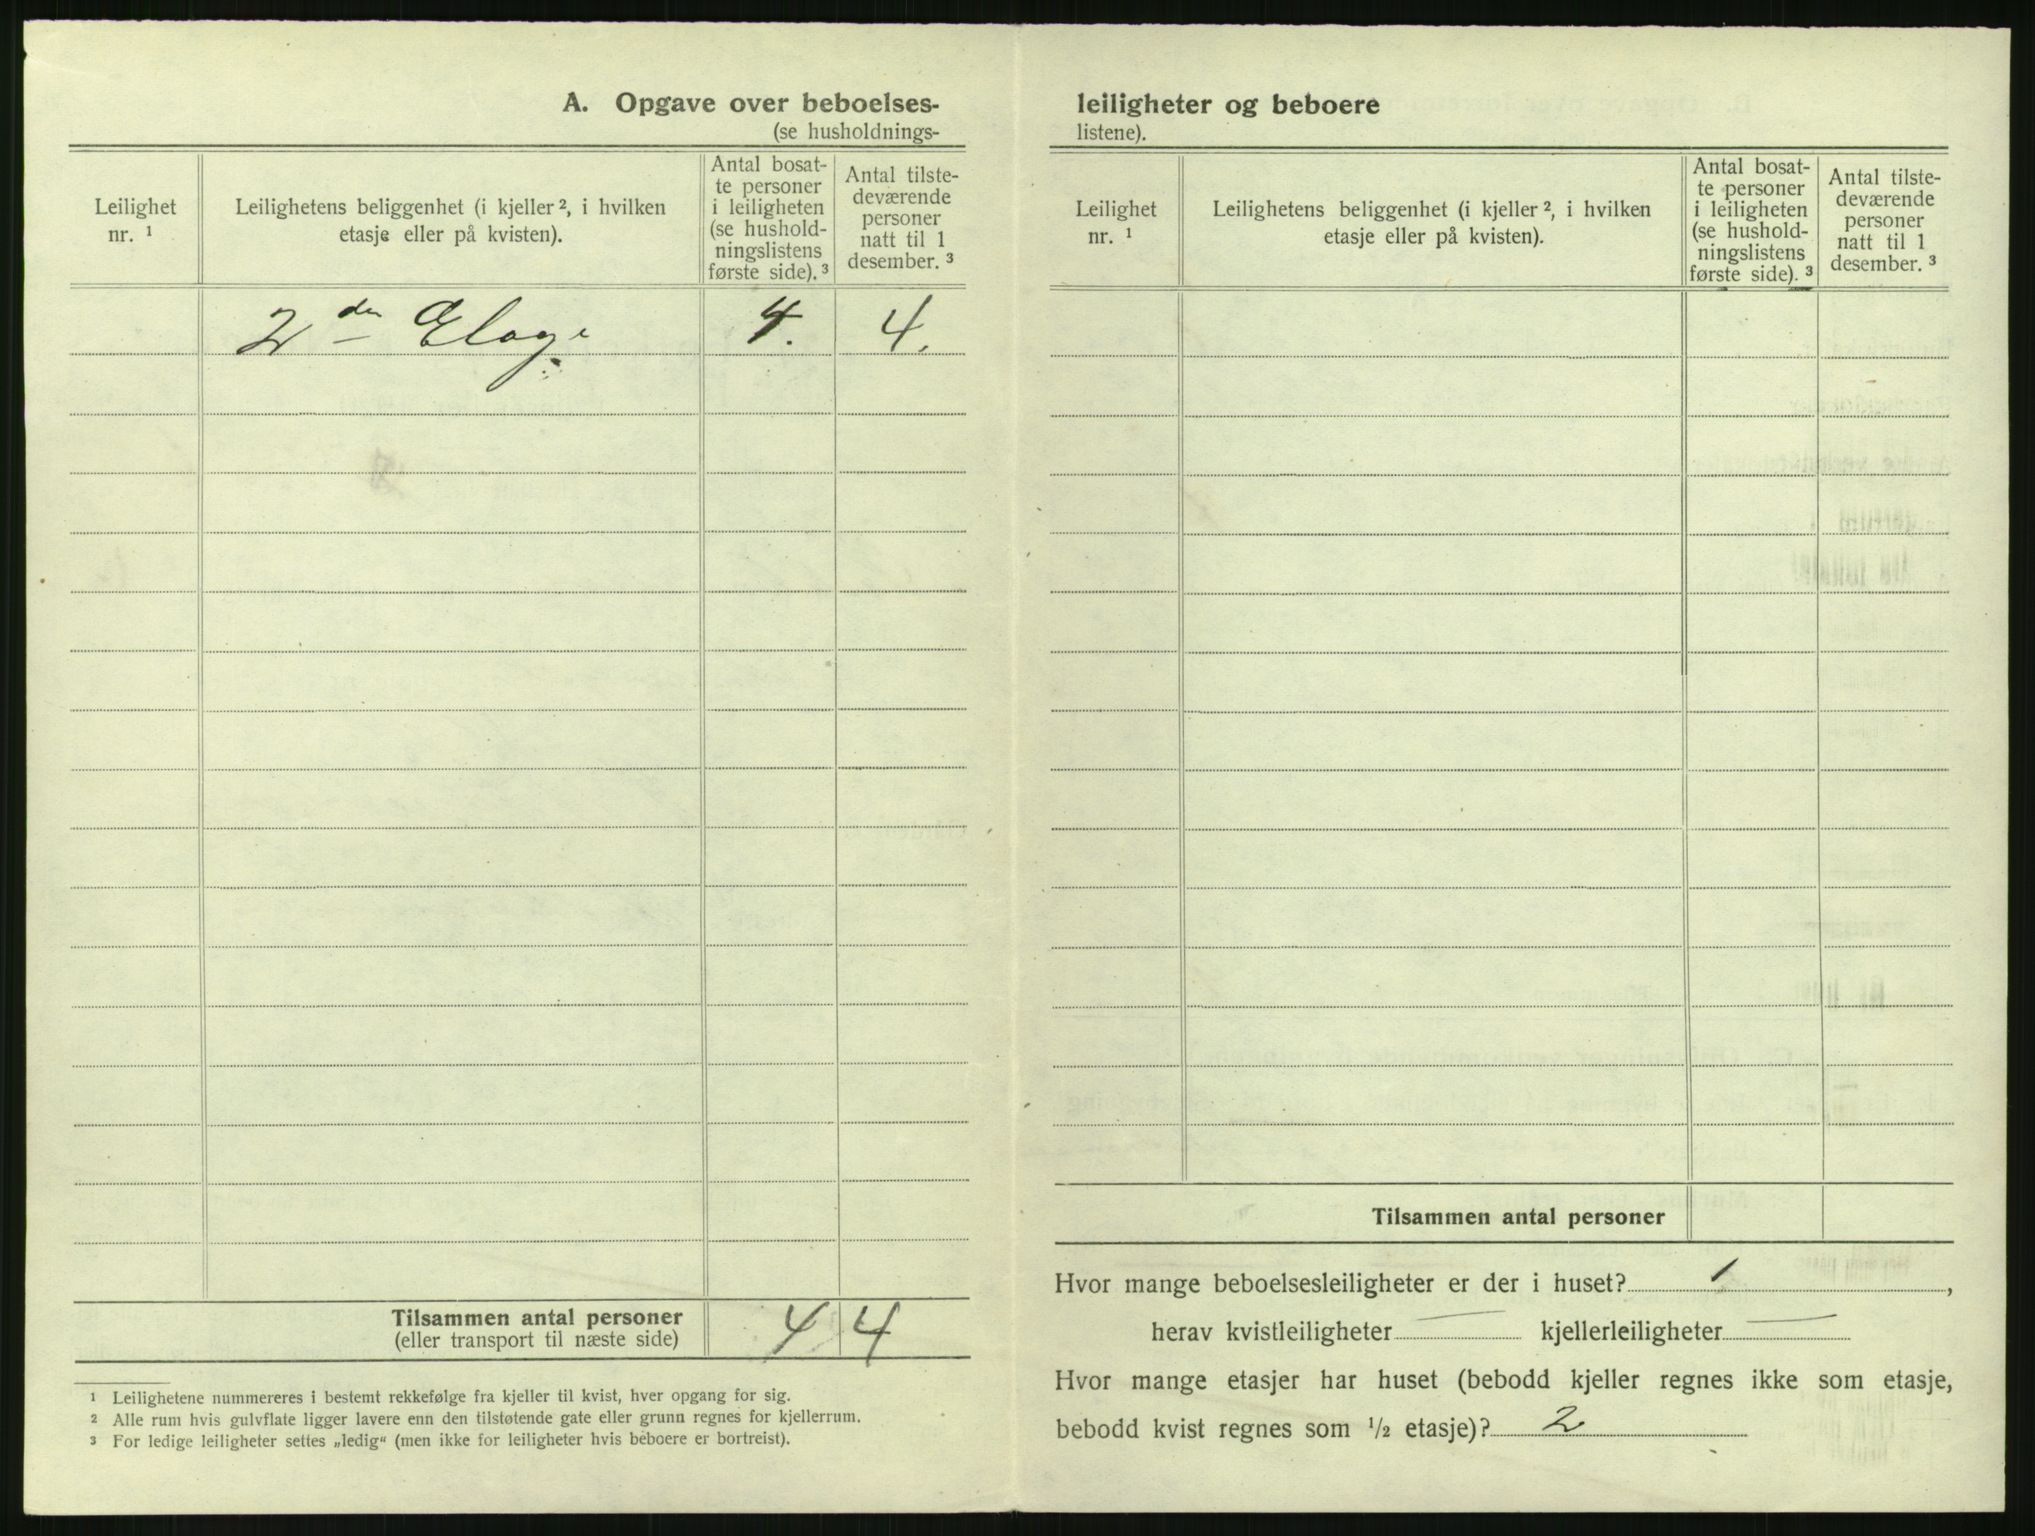 A. Opgave over beboelses-
(se husholdnings-
Leilighet
nr. ¹
Leilighetens beliggenhet (i kjeller ², i hvilken
etasje eller på kvisten).
Antal bosat-
te personer
i leiligheten
(se hushold-
ningslistens
første side). ³
Antal tilste-
deværende
personer
natt til 1
desember. ³
2den Etage 4. 4.
Tilsammen antal personer 4 4
(eller transport til næste side)
¹ Leilighetene nummereres i bestemt rekkefølge fra kjeller til kvist, hver opgang for sig.
² Alle rum hvis gulvflate ligger lavere enn den tilstøtende gate eller grunn regnes for kjellerrum.
³ For ledige leiligheter settes „ledig“ (men ikke for leiligheter hvis beboere er bortreist).
leiligheter og beboere
listene).
Leilighet
nr. ¹
Leilighetens beliggenhet (i kjeller ², i hvilken
etasje eller på kvisten).
Antal bosat-
te personer
i leiligheten
(se hushold-
ningslistens
første side). ³
Antal tilste-
deværende
personer
natt til 1
desember. ³
Tilsammen antal personer
Hvor mange beboelsesleiligheter er der i huset? 1 ,
herav kvistleiligheter — kjellerleiligheter —
Hvor mange etasjer har huset (bebodd kjeller regnes ikke som etasje,
bebodd kvist regnes som ½ etasje)? 2